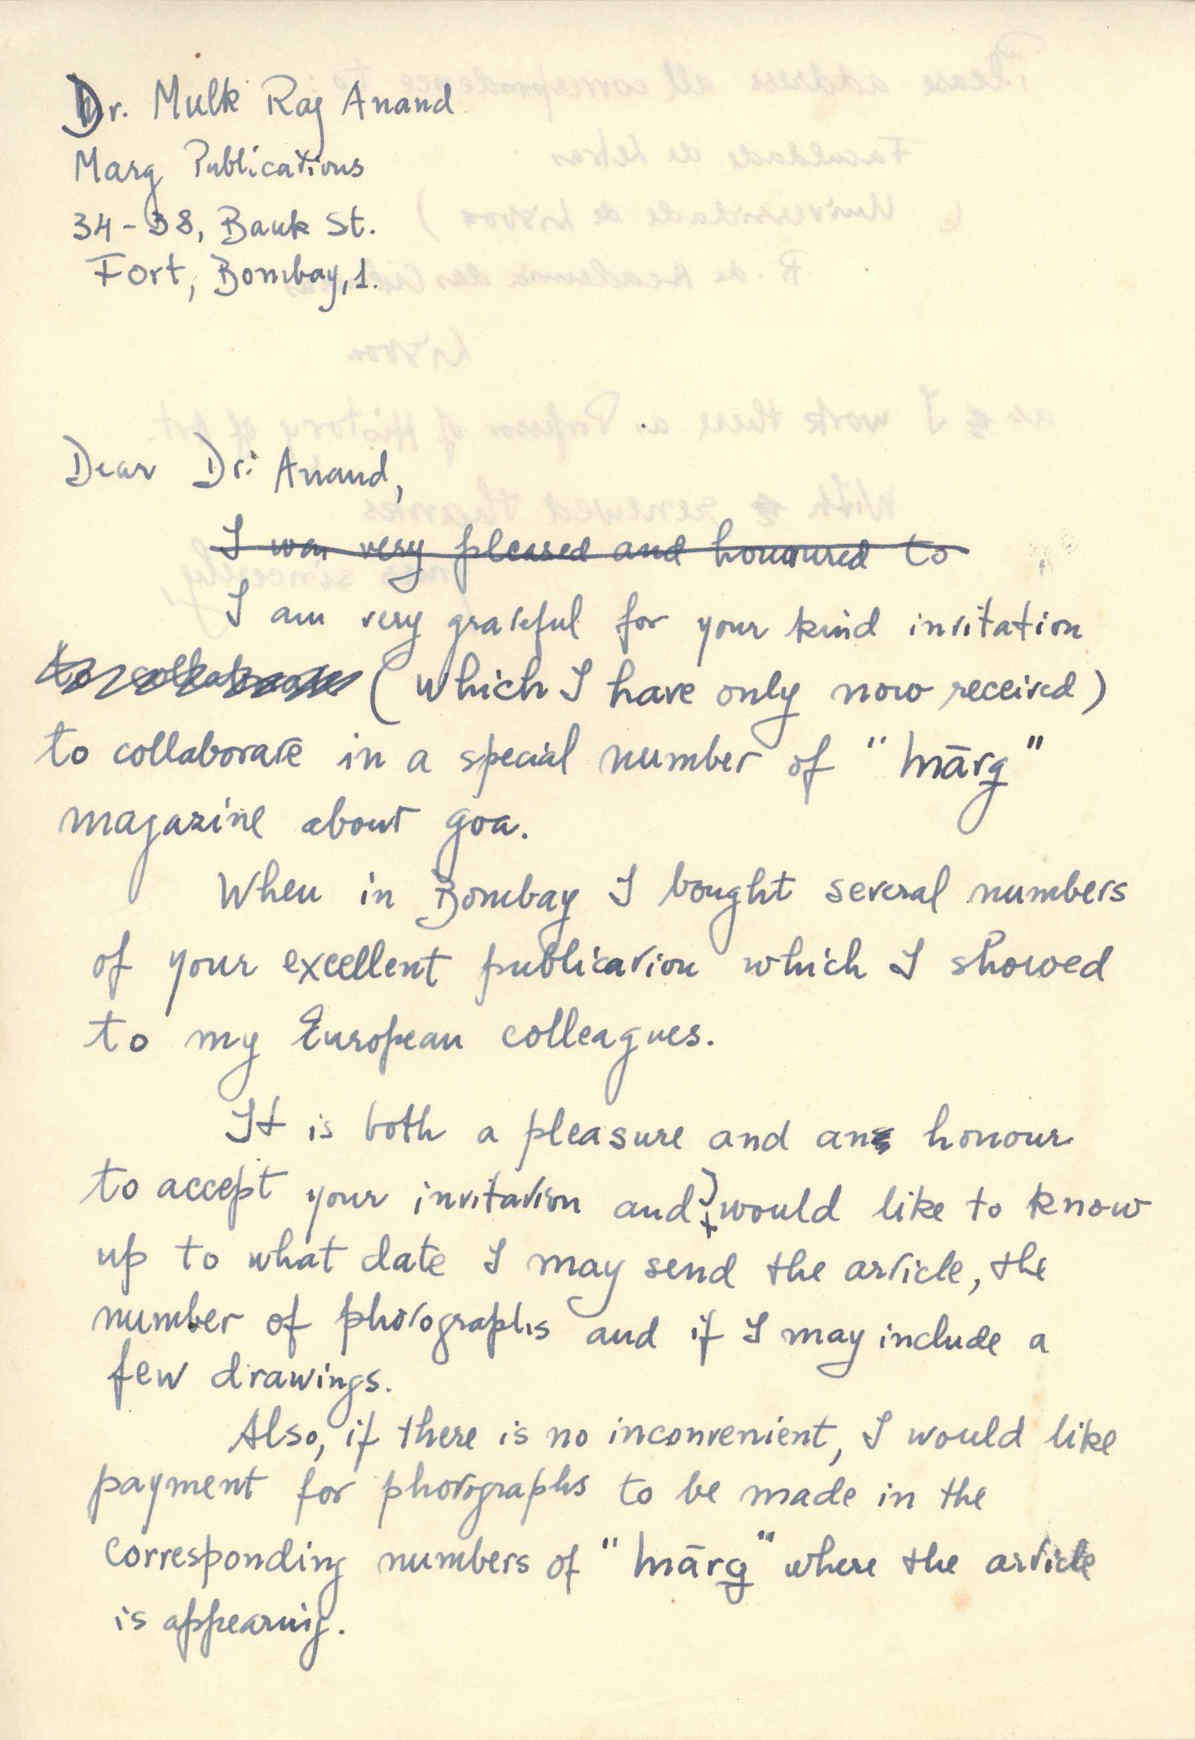 Dr. Mulk Raj Anand
Marg Publications
34-38, Bank St.
Fort, Bombay, 1.
Dear Dr. Anand,
I was very pleased and honoured to
I am very grateful for your kind invitation
to collaborate (which I have only now received)
to collaborate in a special number of "mārg"
magazine about goa.
When in Bombay I bought several numbers
of your excellent publication which I showed
to my European colleagues.
It is both a pleasure and an honour
to accept your invitation and I would like to know
up to what date I may send the article, the
number of photographs and if I may include a
few drawings.
Also, if there is no inconvenient, I would like
payment for photographs to be made in the
corresponding numbers of "mārg" where the article
is appearing.